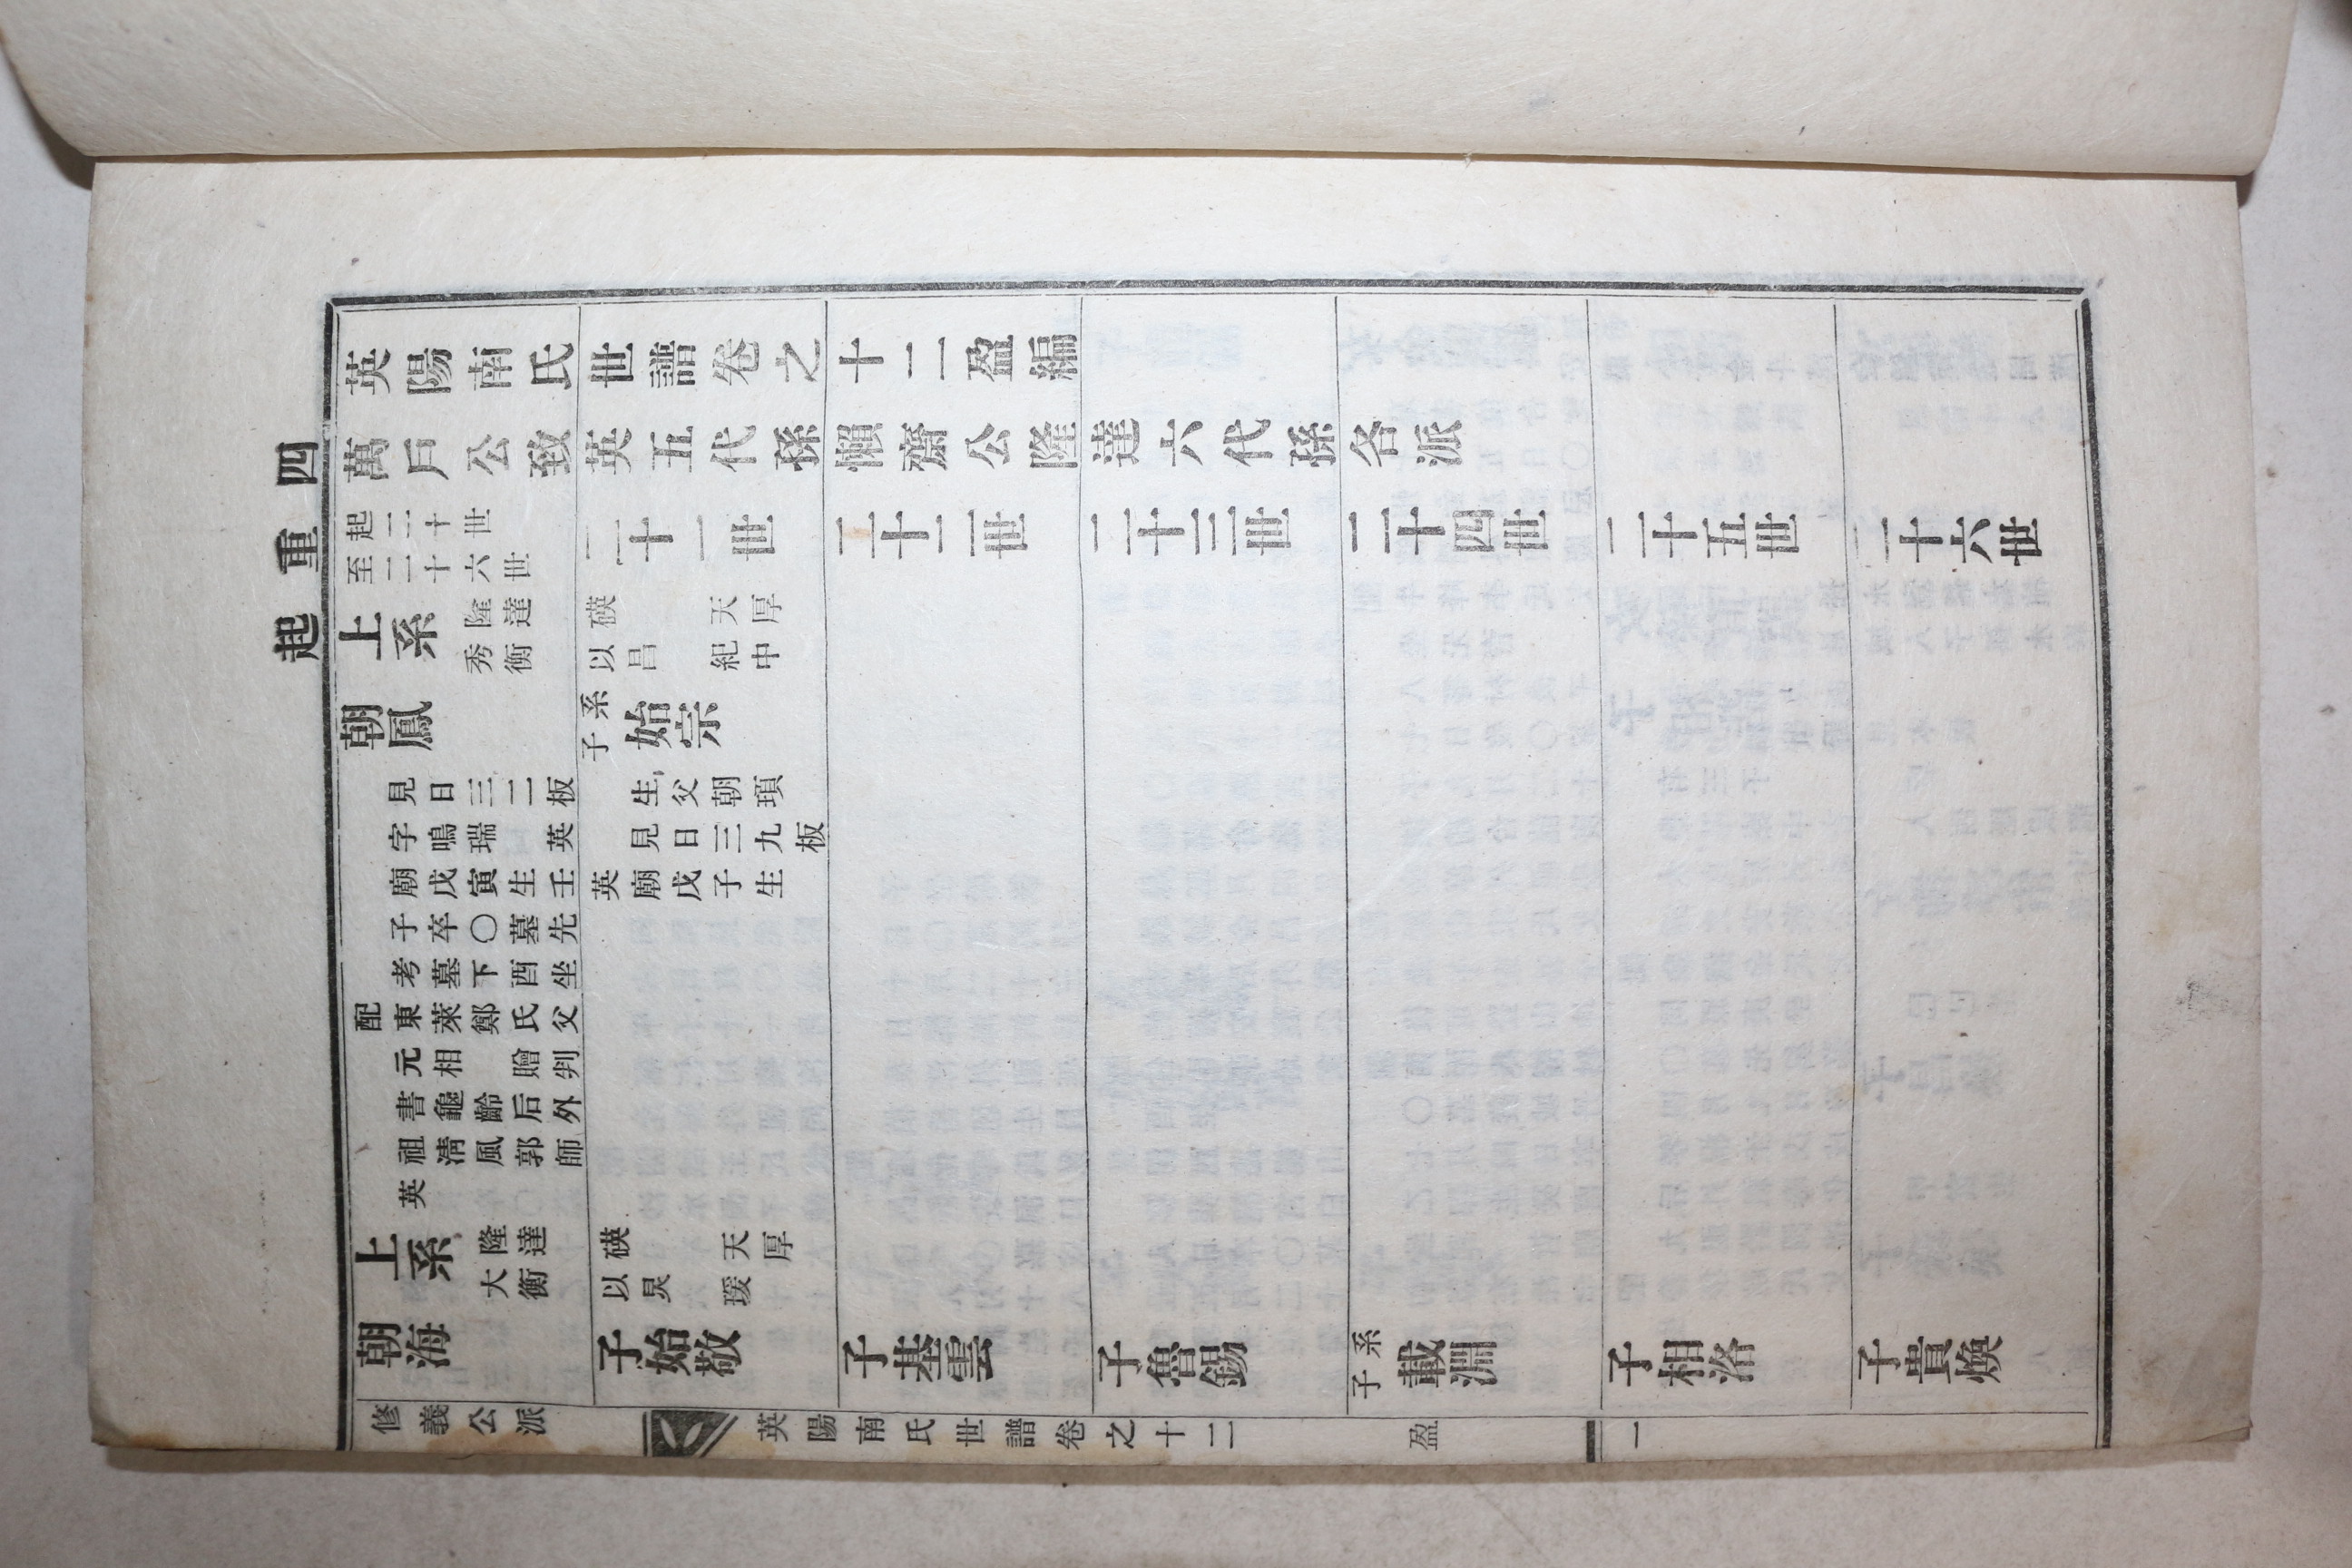 四重起
英陽南氏世譜卷之十二盈編
萬戶公致英五代孫懶齋公隆達六代孫各派
起二十世
至二十六世
二十一世
二十二世
二十三世
二十四世
二十五世
二十六世
上系
隆達 碤 天厚
秀衡 以昌 紀中
朝鳳
見日三二板
字鳴瑞 英
廟戊寅生壬
子卒〇墓先
考墓下酉坐
配東萊鄭氏父
元相 贈判
書龜齡后外
祖淸風郭師
英
系子始宗
生父朝頊
見日三九板
英廟戊子生
上系
隆達 碤 天厚
大衡 以炅 瑗
朝海
子始敬
子基雲
子魯錫
系子載淵
子相洛
子貴煥
修義公派 英陽南氏世譜卷之十二 盈 一